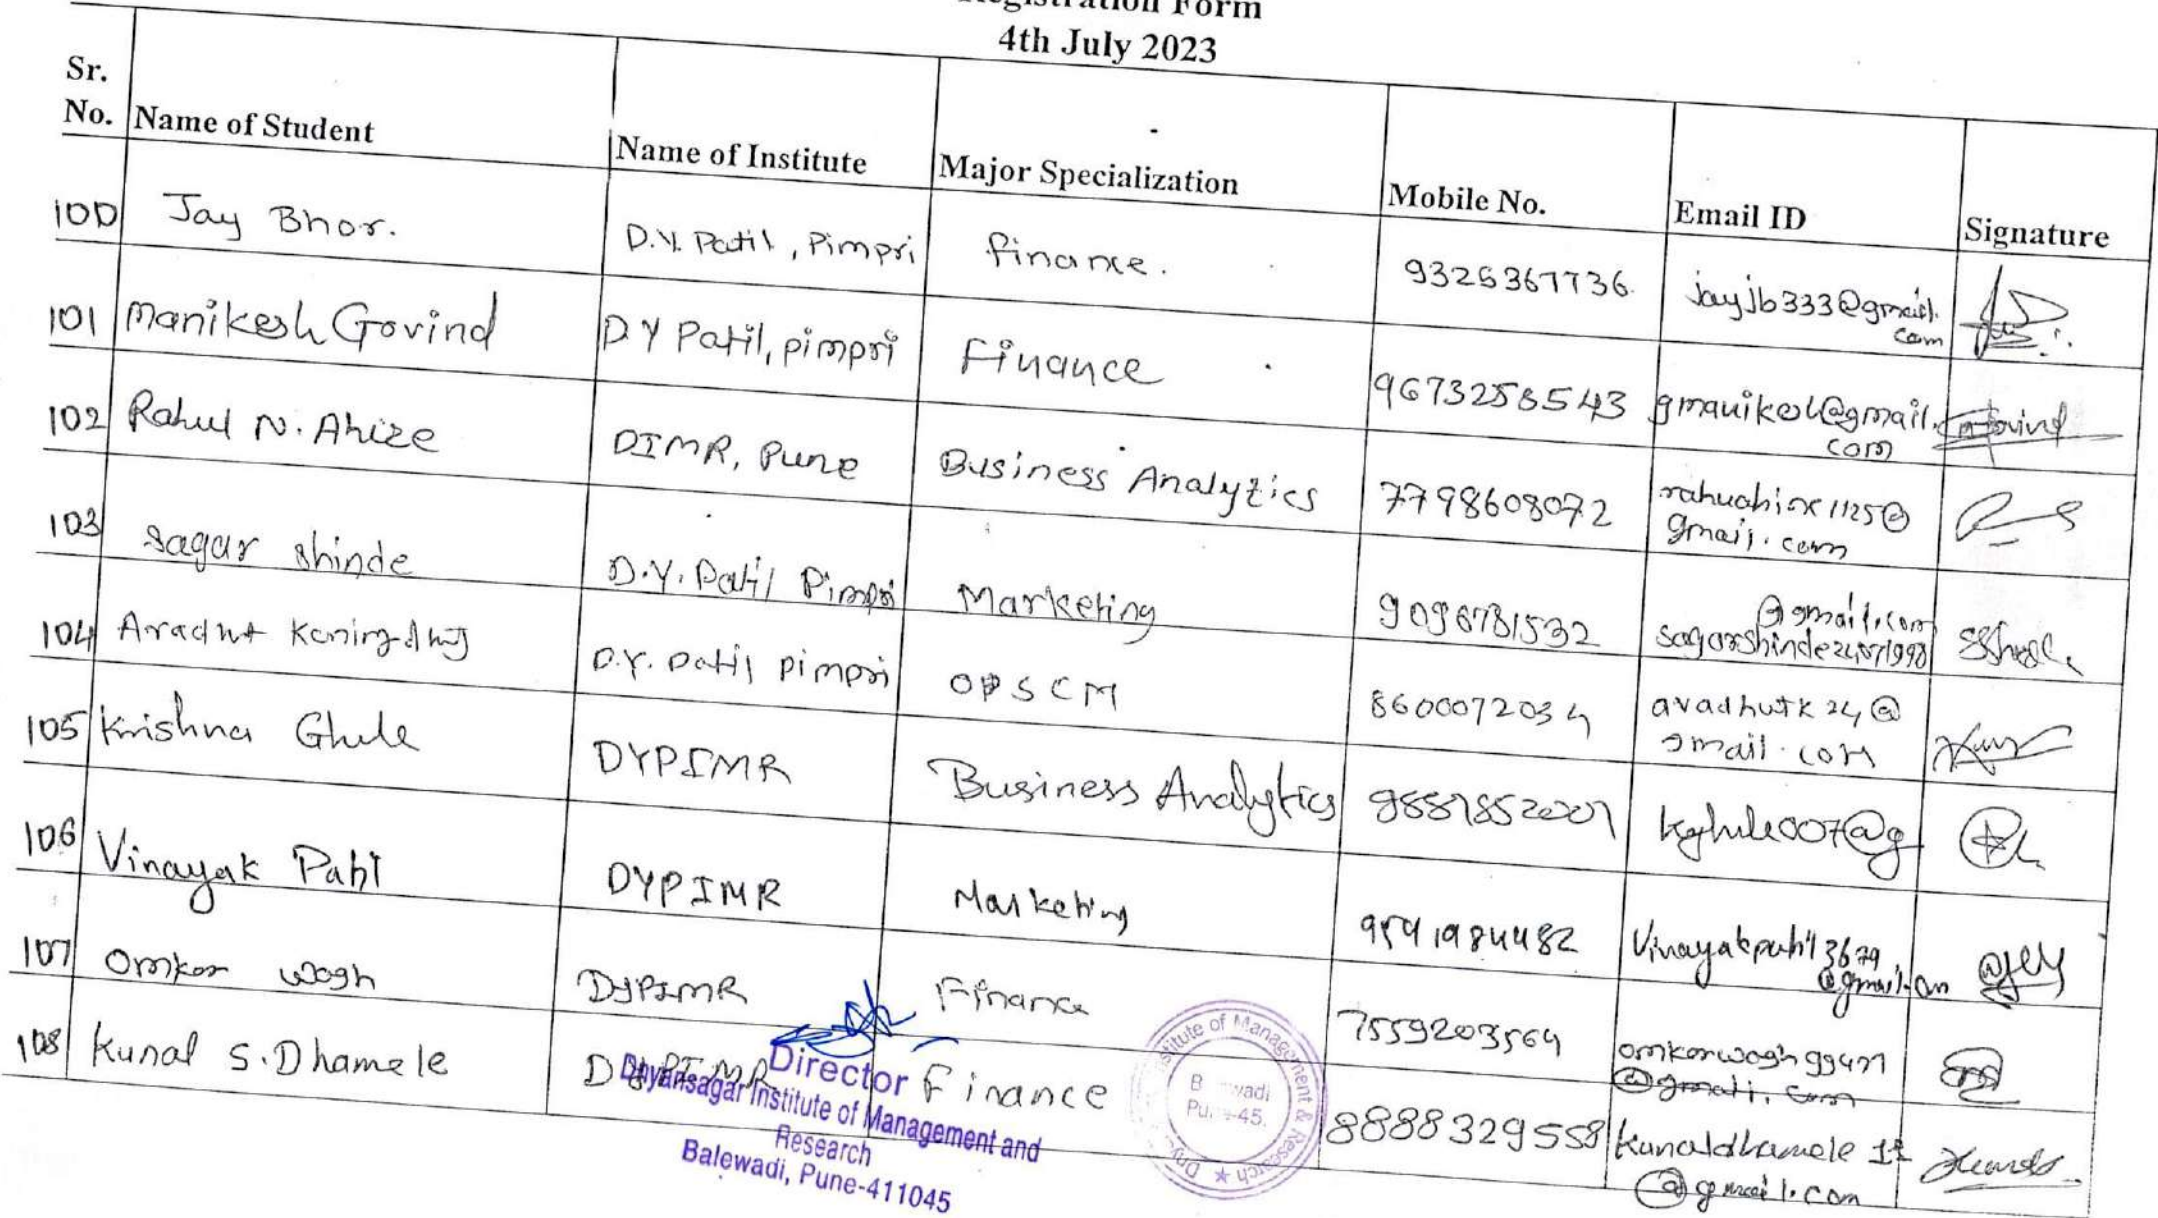 Registration Form
4th July 2023
Sr. No. Name of Student Name of Institute Major Specialization Mobile No. Email ID Signature
100 Jay Bhor. D.Y. Patil, Pimpri finance. 9325367736. jayjb333@gmail.com
101 Manikesh Govind D Y Patil, pimpri Finance 9673258543 gmanikesh@gmail.com
102 Rahul N. Ahize DIMR, Pune Business Analytics 7798608072 gmail.com
103 Sagar Shinde D.Y. Patil Pimpri Marketing 9096781532 @gmail.com
104 D.Y. Patil pimpri OPSCM 8600072034 avadhutk24@gmail.com
105 Krishna Ghule DYPIMR Business Analytics kghule007@g
106 Vinayak Patil DYPIMR Marketing Vinayakpatil3679@gmail.
107 Omkar Wagh DYPIMR Finance 7559203564
108 Kunal S. Dhamele DYPIMR Finance 8888329558 kunaldhamele11@gmail.com
Director
Dnyansagar Institute of Management and
Research
Balewadi, Pune-411045
Institute of Management & Research ★
Balewadi
Pune-45.